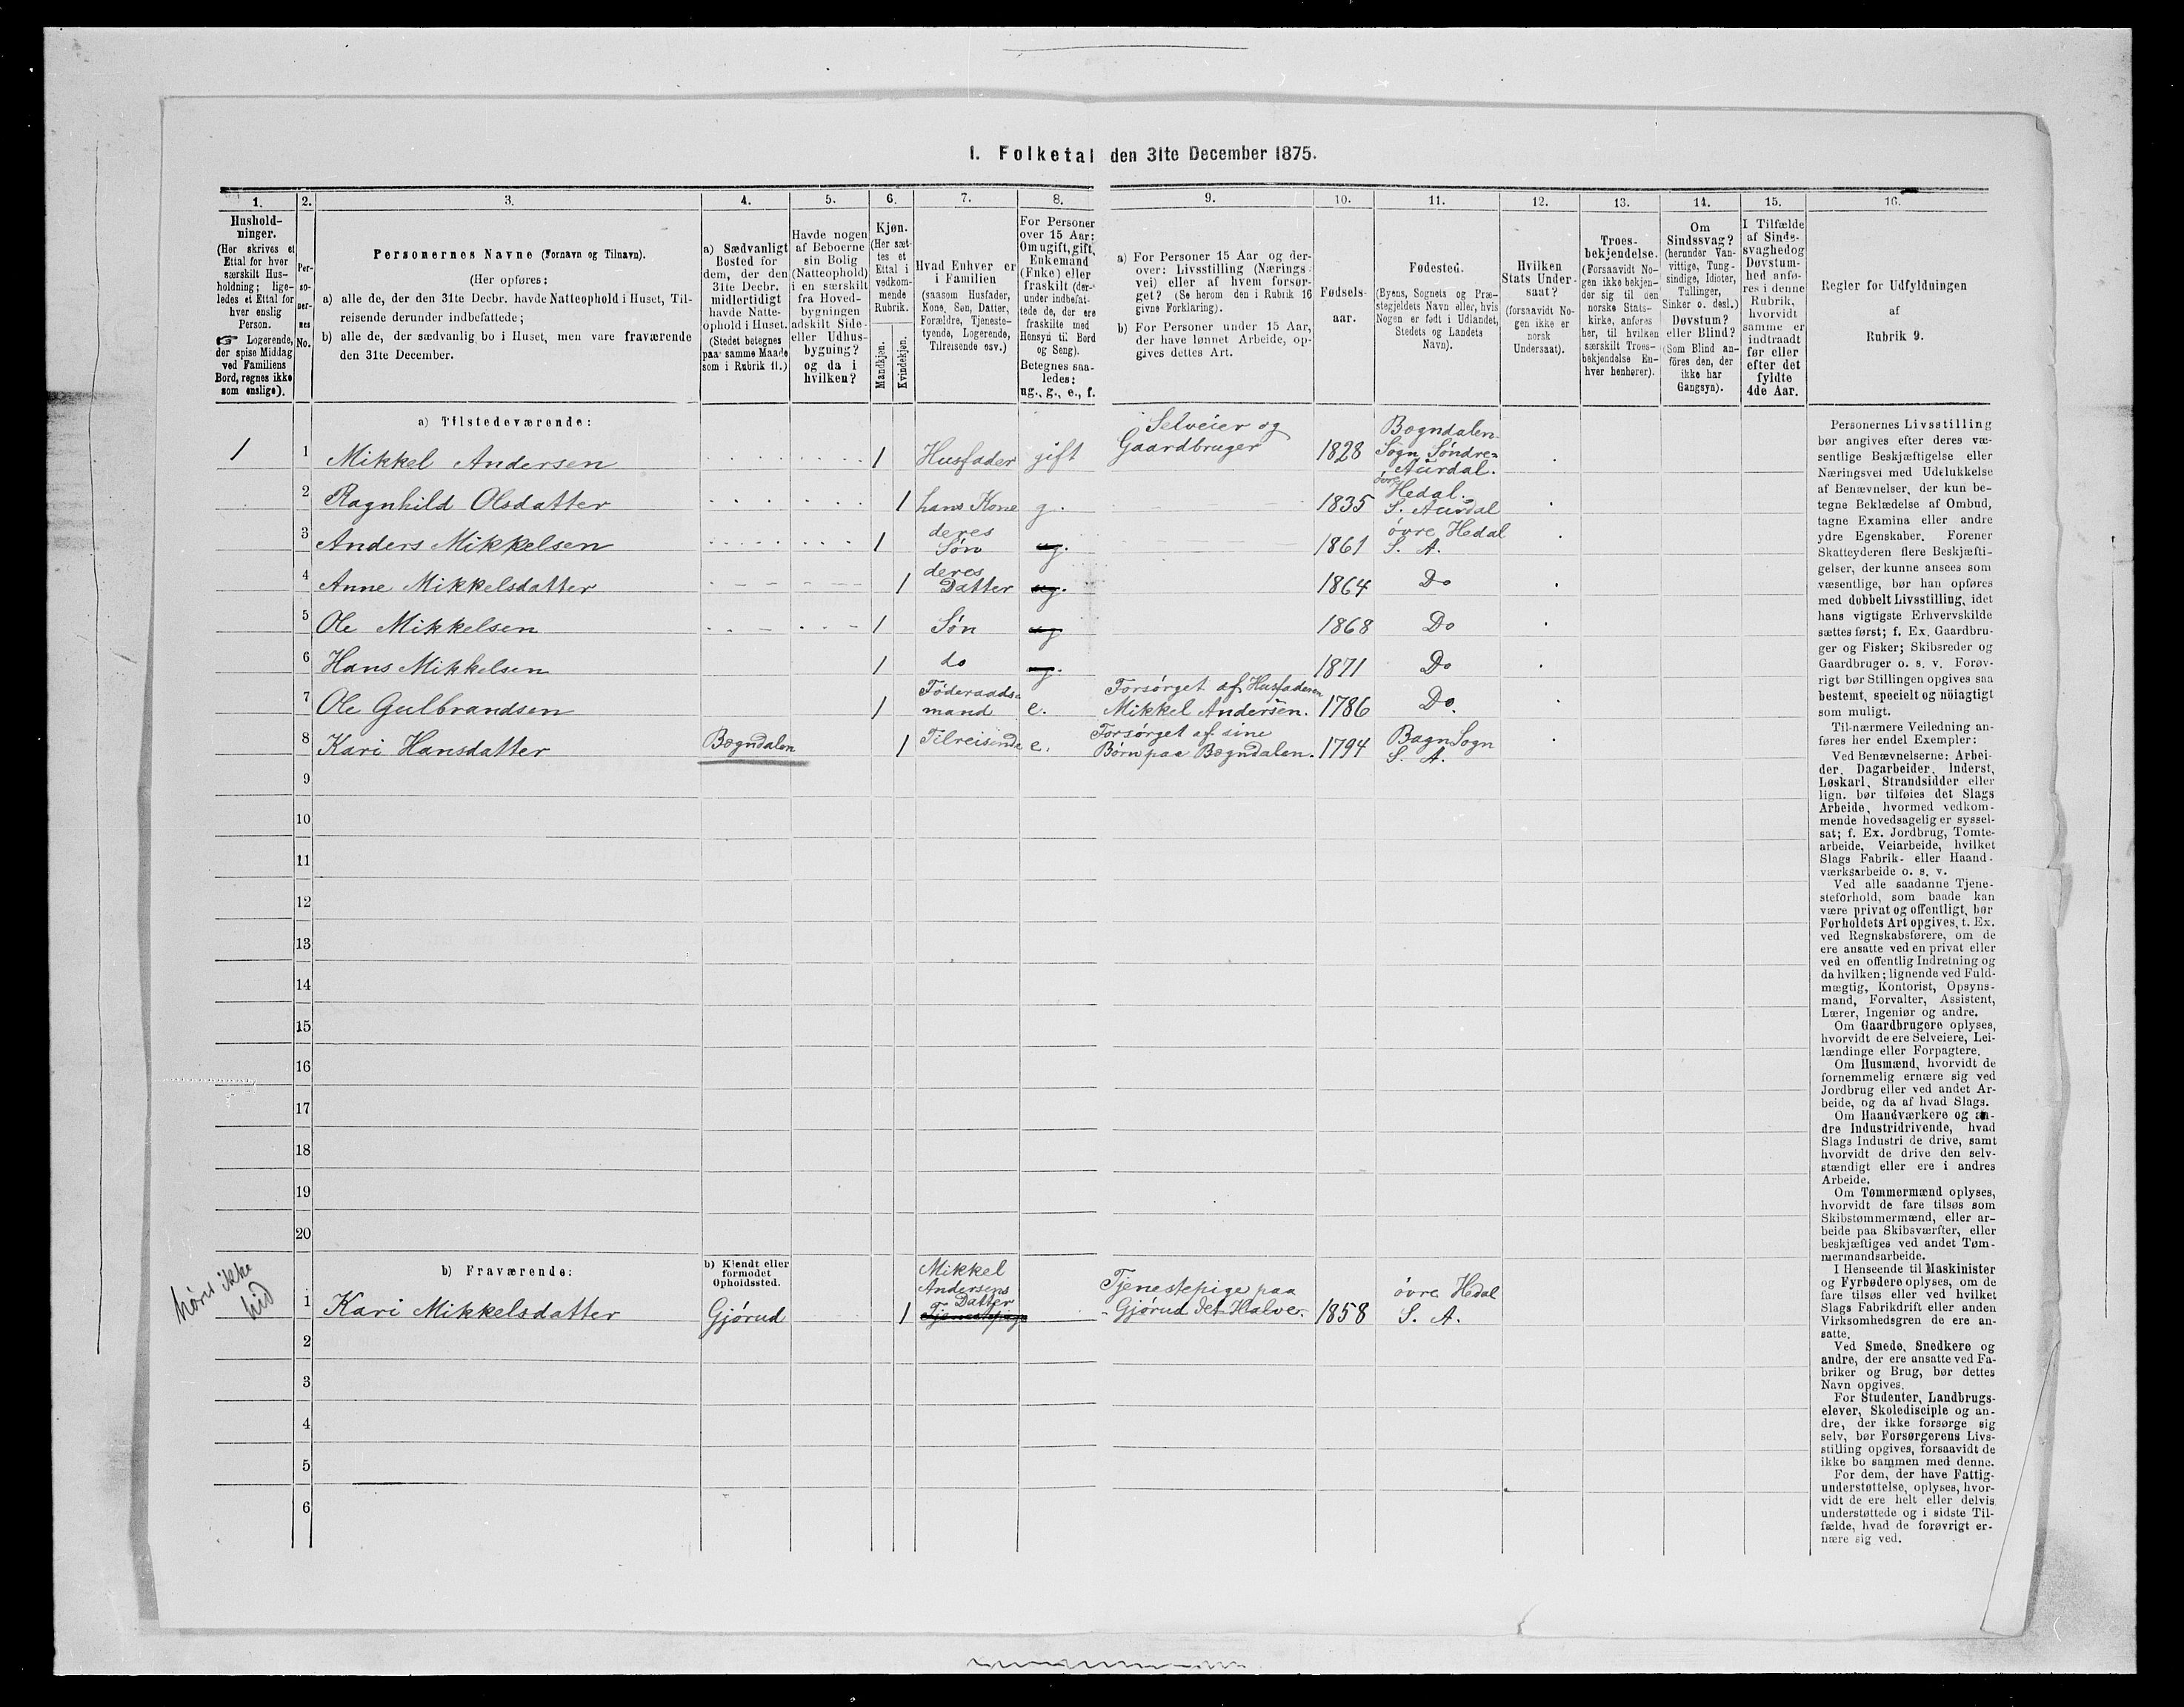 I. Folketal den 31te December 1875.
1.
Hushold-
ninger.
(Her skrives et
Ettal for hver
særskilt Hus-
holdning; lige-
ledes et Ettal for
hver enslig
Person.
☞ Logerende,
der spise Middag
ved Familiens
Bord, regnes ikke
som enslige).
2.
Per-
so-
ner-
nes
No.
3.
Personernes Navne (Fornavn og Tilnavn).
(Her opføres:
a) alle de, der den 31te Decbr. havde Natteophold i Huset, Til-
reisende derunder indbefattede;
b) alle de, der sædvanlig bo i Huset, men vare fraværende
den 31te December.
4.
a) Sædvanligt
Bosted for
dem, der den
31te Decbr.
midlertidigt
havde Natte-
ophold i Huset.
(Stedet betegnes
paa samme Maade
som i Rubrik 11.)
5.
Havde nogen
af Beboerne
sin Bolig
(Natteophold)
i en særskilt
fra Hoved-
bygningen
adskilt Side-
eller Udhus-
bygning?
og da i
hvilken?
6.
Kjøn.
(Her sæt-
tes et
Ettal i
vedkom-
mende
Rubrik.
Mandkjøn.
Kvindekjøn.
7.
Hvad Enhver er
i Familien
(saasom Husfader,
Kone, Søn, Datter,
Forældre, Tjeneste-
tyende, Logerende,
Tilreisende osv.)
8.
For Personer
over 15 Aar:
Om ugift, gift,
Enkemand
(Enke) eller
fraskilt (der-
under indbefat-
tede de, der ere
fraskilte med
Hensyn til Bord
og Seng).
Betegnes saa-
ledes:
ug., g., e., f.
9.
a) For Personer 15 Aar og der-
over: Livsstilling (Nærings-
vei) eller af hvem forsør-
get? (Se herom den i Rubrik 16
givne Forklaring).
b) For Personer under 15 Aar,
der have lønnet Arbeide, op-
gives dettes Art.
10.
Fødsels-
aar.
11.
Fødested.
(Byens, Sognets og Præ-
stegjeldets Navn eller, hvis
Nogen er født i Udlandet,
Stedets og Landets
Navn).
12.
Hvilken
Stats Under-
saat?
(forsaavidt No-
gen ikke er
norsk
Undersaat).
13.
Troes-
bekjendelse.
(Forsaavidt No-
gen ikke bekjen-
der sig til den
norske Stats-
kirke, anføres
her, til hvilken
særskilt Troes-
bekjendelse En-
hver henhører).
14.
Om
Sindssvag?
(herunder Van-
vittige, Tung-
sindige, Idioter,
Tullinger,
Sinker o. desl.)
Døvstum?
eller Blind?
(Som Blind an-
føres den, der
ikke har
Gangsyn).
15.
I Tilfælde
af Sinds-
svaghed og
Døvstum-
hed anfø-
res i denne
Rubrik,
hvorvidt
samme er
indtraadt
før eller
efter det
fyldte
4de Aar.
16.
Regler for Udfyldningen
af
Rubrik 9.
a) Tilstedeværende:
1 1 Mikkel Andersen 1 Husfader gift Selveier og Gaardbruger 1828 Bægndalen Sogn Søndre Aurdal.
2 Ragnhild Olsdatter 1 hans Kone g. 1835 övre Hedal. S. Aurdal
3 Anders Mikkelsen 1 deres Søn ug. 1861 övre Hedal S. A.
4 Anne Mikkelsdatter 1 deres Datter ug. 1864 Do
5 Ole Mikkelsen 1 Søn ug 1868 Do
6 Hans Mikkelsen 1 do ug. 1871 Do
7 Ole Gulbrandsen 1 Föderaads mand e. Forsørget af Husfaderen Mikkel Andersen. 1786 Do.
8 Kari Hansdatter Bægndalen 1 Tilreisende e. Forsørget af sine Børn paa Bægndalen. 1794 Bagn Sogn S. A.
9
10
11
12
13
14
15
16
17
18
19
20
b) Fraværende:
b) Kjendt eller
formodet
Opholdssted.
høres ikke
hid
1 Kari Mikkelsdatter Gjørud 1 Mikkel Andersens Datter Tjenestepige Tjenestepige paa Gjørud det Halve. 1858 övre Hedal S. A.
2
3
4
5
6
Personernes Livsstilling
bør angives efter deres væ-
sentlige Beskjæftigelse eller
Næringsvei med Udelukkelse
af Benævnelser, der kun be-
tegne Beklædelse af Ombud,
tagne Examina eller andre
ydre Egenskaber. Forener
Skatteyderen flere Beskjæfti-
gelser, der kunne ansees som
væsentlige, bør han opføres
med dobbelt Livsstilling, idet
hans vigtigste Erhvervskilde
sættes først; f. Ex. Gaardbru-
ger og Fisker; Skibsreder og
Gaardbruger o. s. v. Forøv-
rigt bør Stillingen opgives saa
bestemt, specielt og nøiagtigt
som muligt.
Til nærmere Veiledning an-
føres her endel Exempler:
Ved Benævnelserne: Arbei-
der, Dagarbeider, Inderst,
Løskarl, Strandsidder eller
lign. bør tilføies det Slags
Arbeide, hvormed vedkom-
mende hovedsagelig er syssel-
sat; f. Ex. Jordbrug, Tomte-
arbeide, Veiarbeide, hvilket
Slags Fabrik- eller Haand-
værksarbeide o. s. v.
Ved alle saadanne Tjene-
steforhold, som baade kan
være privat og offentligt, bør
Forholdets Art opgives, t. Ex.
ved Regnskabsførere, om de
ere ansatte ved en privat eller
ved en offentlig Indretning og
da hvilken; lignende ved Fuld-
mægtig, Kontorist, Opsyns-
mand, Forvalter, Assistent,
Lærer, Ingeniør og andre.
Om Gaardbrugere oplyses,
hvorvidt de ere Selveiere, Lei-
lændinge eller Forpagtere.
Om Husmænd, hvorvidt de
fornemmelig ernære sig ved
Jordbrug eller ved andet Ar-
beide, og da af hvad Slags.
Om Haandværkere og an-
dre Industridrivende, hvad
Slags Industri de drive, samt
hvorvidt de drive den selv-
stændigt eller ere i andres
Arbeide.
Om Tømmermænd oplyses,
hvorvidt de fare tilsøs som
Skibstømmermænd, eller ar-
beide paa Skibsværfter, eller
beskjæftiges ved andet Tøm-
mermandsarbeide.
I Henseende til Maskinister
og Fyrbødere oplyses, om de
fare tilsøs eller ved hvilket
Slags Fabrikdrift eller anden
Virksomhedsgren de ere an-
satte.
Ved Smede, Snedkere og
andre, der ere ansatte ved Fa-
briker og Brug, bør dettes
Navn opgives.
For Studenter, Landbrugs-
elever, Skoledisciple og an-
dre, der ikke forsørge sig
selv, bør Forsørgerens Livs-
stilling opgives, forsaavidt de
ikke bo sammen med denne.
For dem, der have Fattig-
understøttelse, oplyses, hvor-
vidt de ere helt eller delvis
understøttede og i sidste Til-
fælde, hvad de forøvrigt er-
nære sig ved.